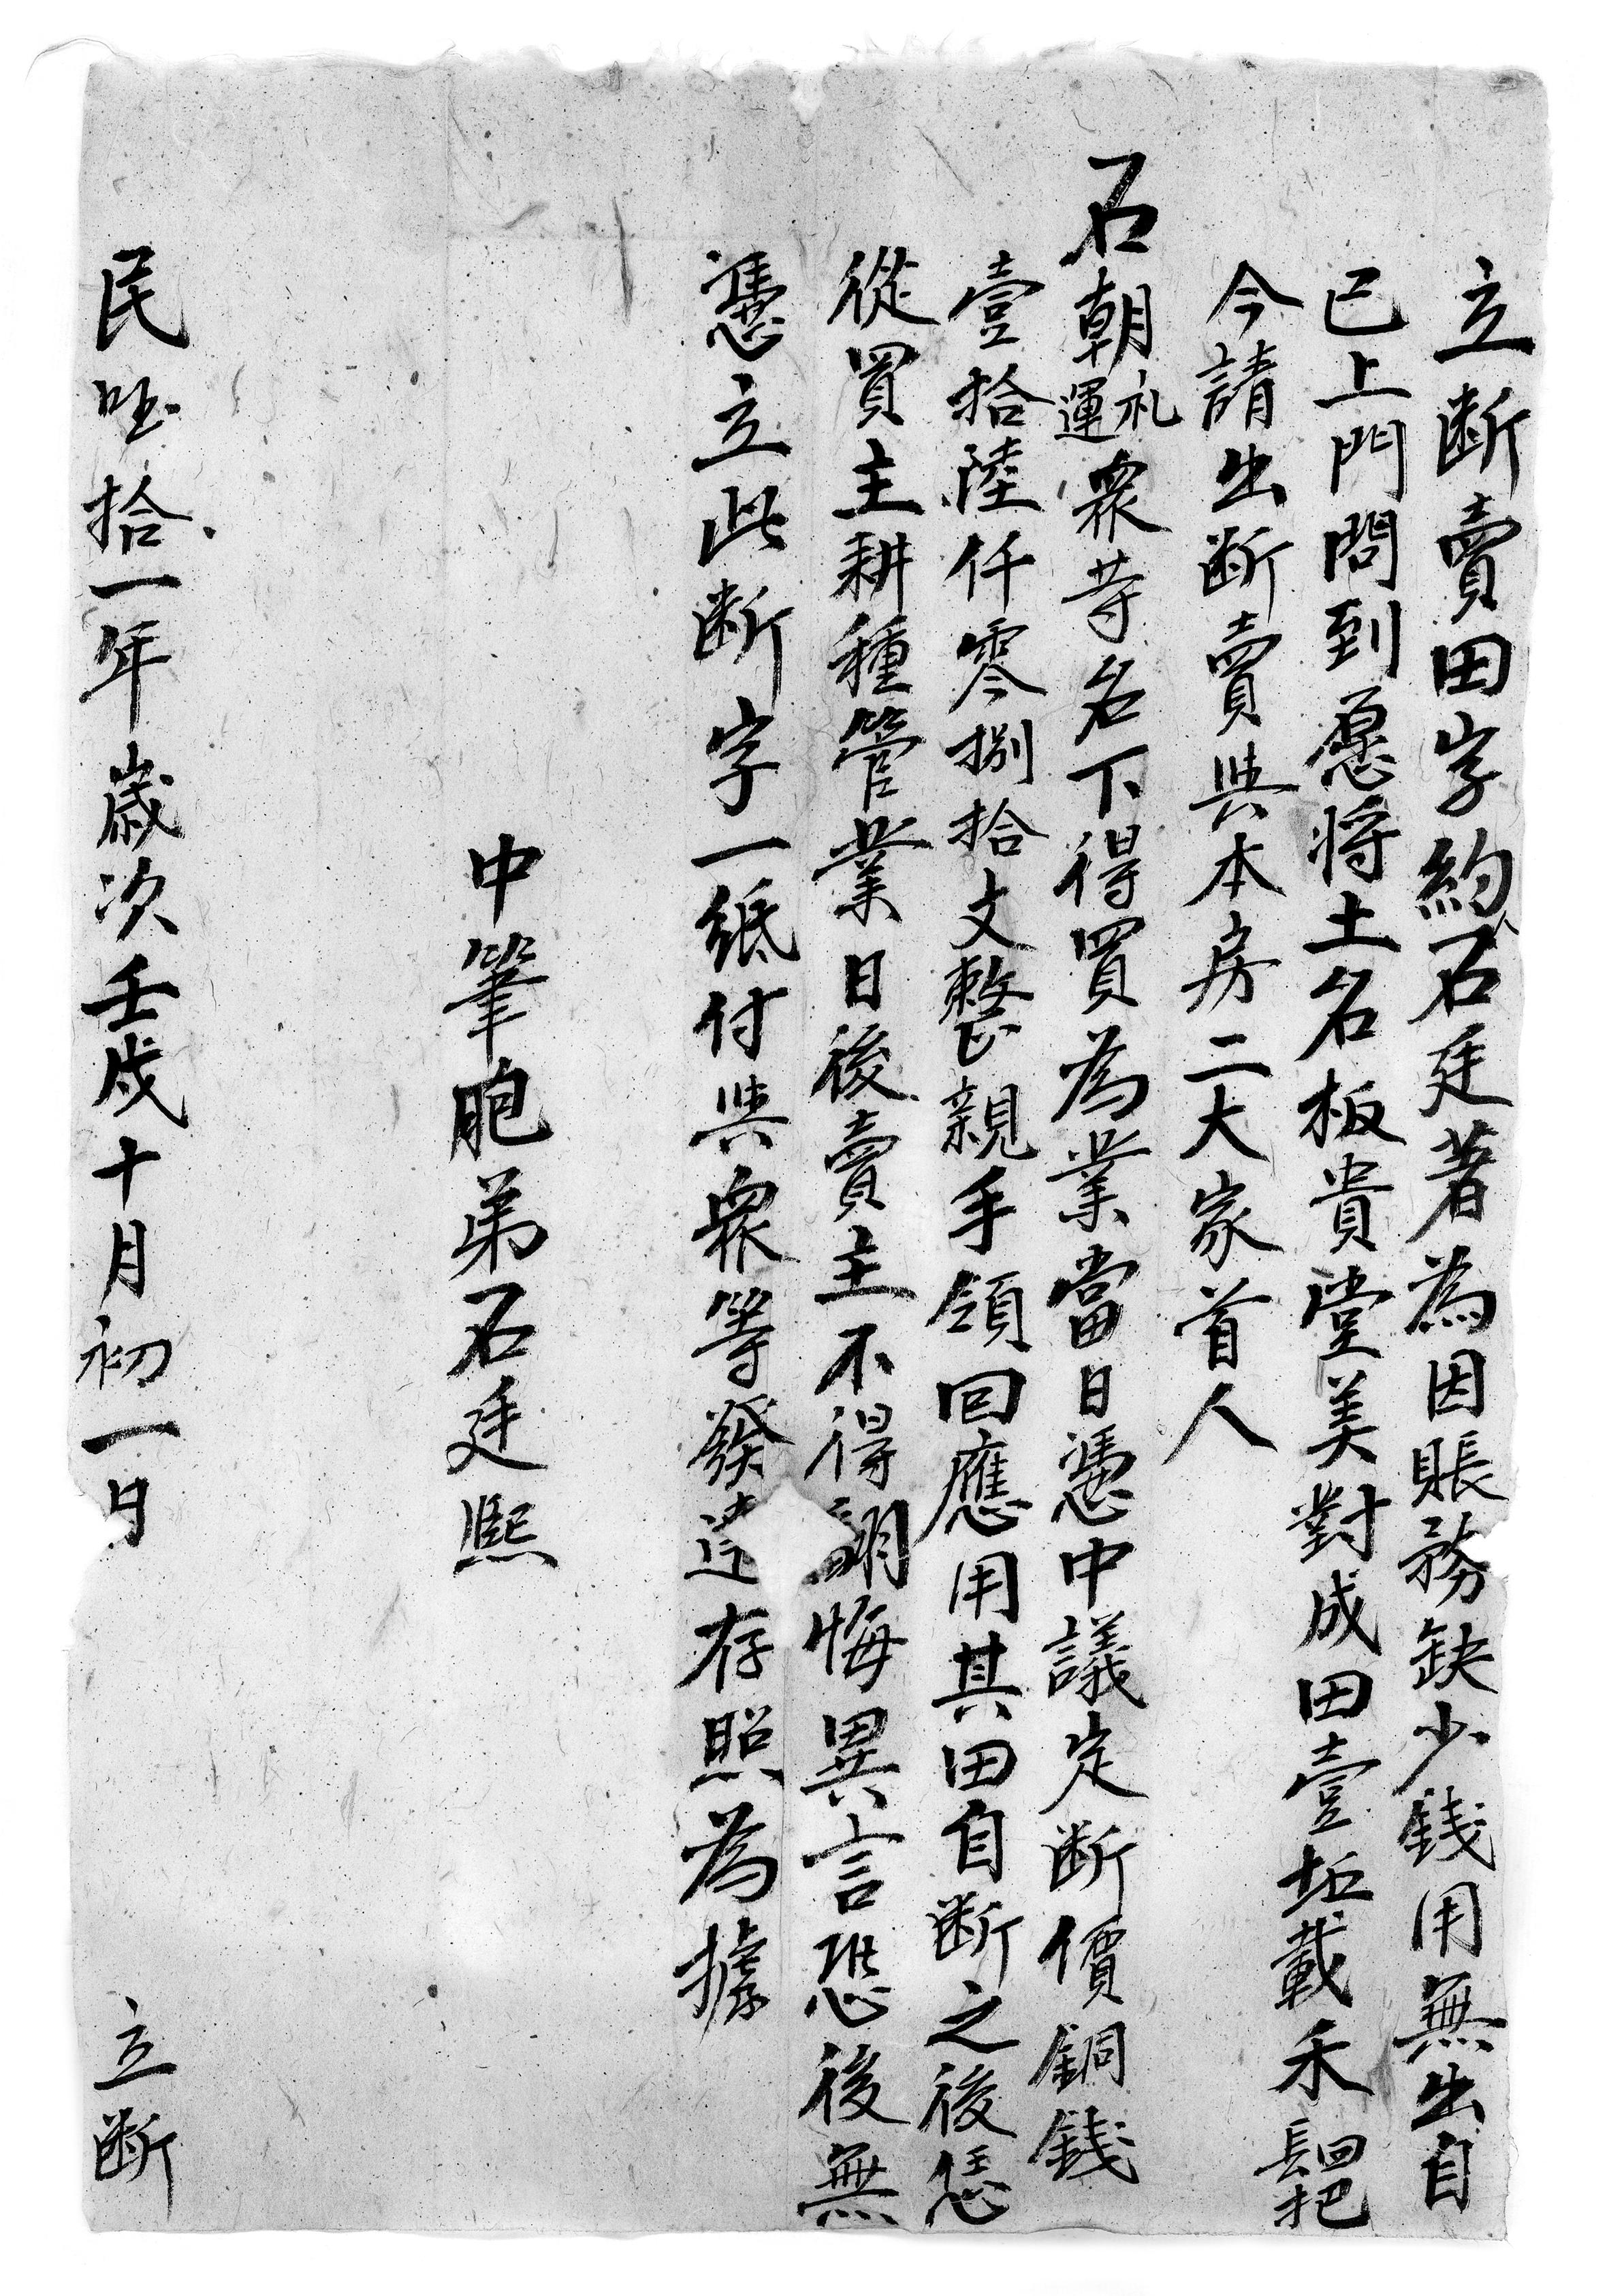 立断賣田字約人石廷著為因賬務缺少錢用無出自
已上門問到愿將土名板貴堂美對成田壹坵載禾 把
今請出断賣與本房二大家首人
石朝礼運衆等名下得買為業當日憑中議定断價銅錢
壹拾陸仟零捌拾文整親手領回應用其田自断之後恁
從買主耕種管業日後賣主不得翻悔異言恐後無
憑立此断字一紙付與衆等發達存照為據
中筆胞弟石廷熙
民 拾一年歲次壬戌十月初一日 立断